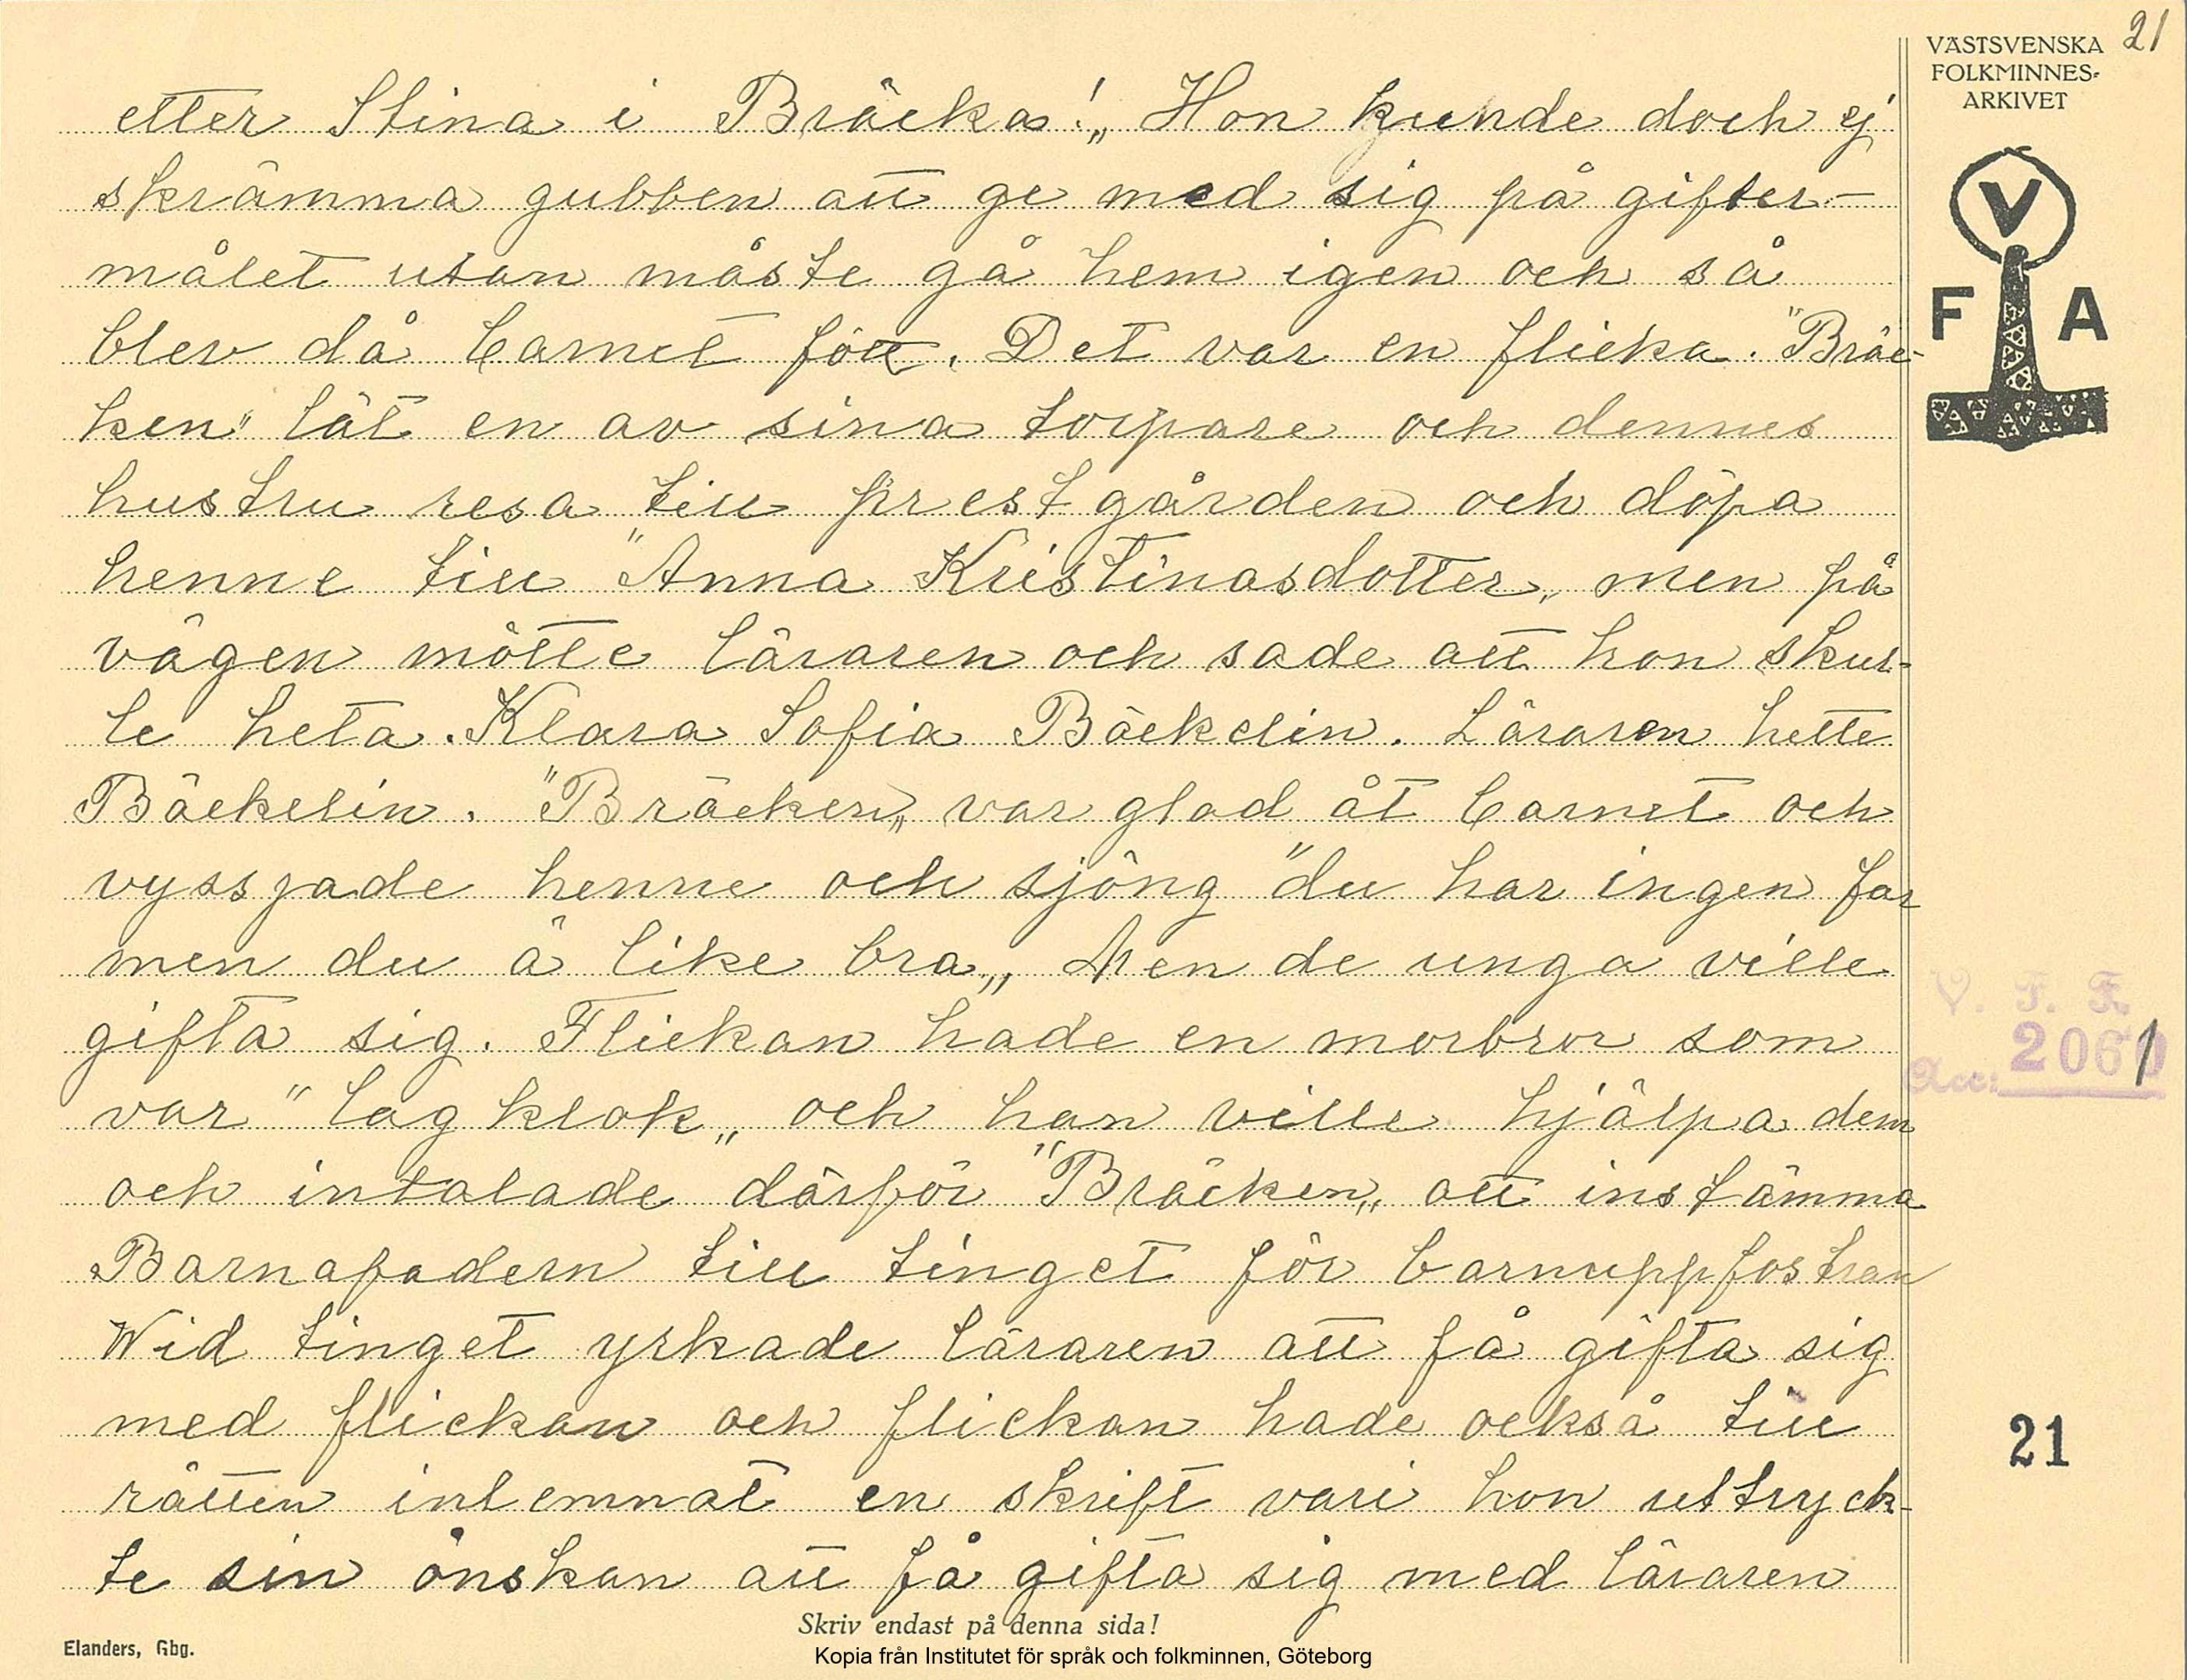 21
VÄSTSVENSKA
FOLKMINNES-
ARKIVET
V
F A
etter Stina i Bräcka!„ Hon kunde doch ej
skrämma gubben att ge med sig på gifter-
målet utan måste gå hem igen och så
blev då barnet fött. Det var en flicka. "Bräc-
ken" lät en av sina torpare och dennes
hustru resa till prestgården och döpa
henne till "Anna Kristinasdotter„ men på
vägen mötte läraren och sade att hon skul-
le heta. Klara Sofia Bäckelin. Läraren hette
Bäckelin. "Bräcken„ var glad åt barnet och
vyssjade henne och sjöng "du har ingen far
men du ä like bra„ Men de unga ville
gifta sig. Flickan hade en morbror som
var "lag klok„ och han ville hjälpa dem
och intalade därför "Bräcken„ att instämma
Barnafadern till tinget för barnuppfostran
Wid tinget yrkade läraren att få gifta sig
med flickan och flickan hade också till
rätten inlemnat en skrift vari hon uttryck-
te sin önskan att få gifta sig med läraren
V. F. F.
Acc: 2061
21
Skriv endast på denna sida!
Elanders, Gbg.
Kopia från Institutet för språk och folkminnen, Göteborg